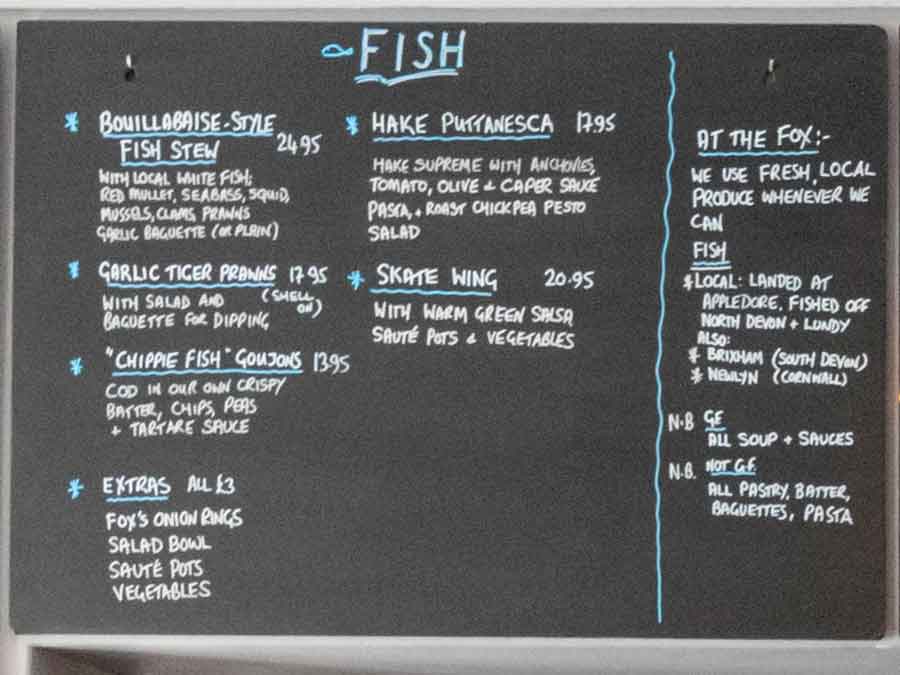 FISH
* BOUILLABAISE-STYLE
FISH STEW 24.95
WITH LOCAL WHITE FISH;
RED MULLET, SEABASS, SQUID,
MUSSELS, CLAMS, PRAWNS
GARLIC BAGUETTE (OR PLAIN)
* GARLIC TIGER PRAWNS 17.95
WITH SALAD AND (SHELL ON)
BAGUETTE FOR DIPPING
* "CHIPPIE FISH" GOUJONS 13.95
COD IN OUR OWN CRISPY
BATTER, CHIPS, PEAS
+ TARTARE SAUCE
* EXTRAS ALL £3
FOX'S ONION RINGS
SALAD BOWL
SAUTÉ POTS
VEGETABLES
* HAKE PUTTANESCA 17.95
HAKE SUPREME WITH ANCHOVIES,
TOMATO, OLIVE & CAPER SAUCE
PASTA, + ROAST CHICKPEA PESTO
SALAD
* SKATE WING 20.95
WITH WARM GREEN SALSA
SAUTÉ POTS & VEGETABLES
AT THE FOX:-
WE USE FRESH, LOCAL
PRODUCE WHENEVER WE
CAN
FISH
* LOCAL: LANDED AT
APPLEDORE, FISHED OFF
NORTH DEVON + LUNDY
ALSO:
* BRIXHAM (SOUTH DEVON)
* NEWLYN (CORNWALL)
N.B GF
ALL SOUP + SAUCES
N.B. NOT G.F.
ALL PASTRY, BATTER,
BAGUETTES, PASTA